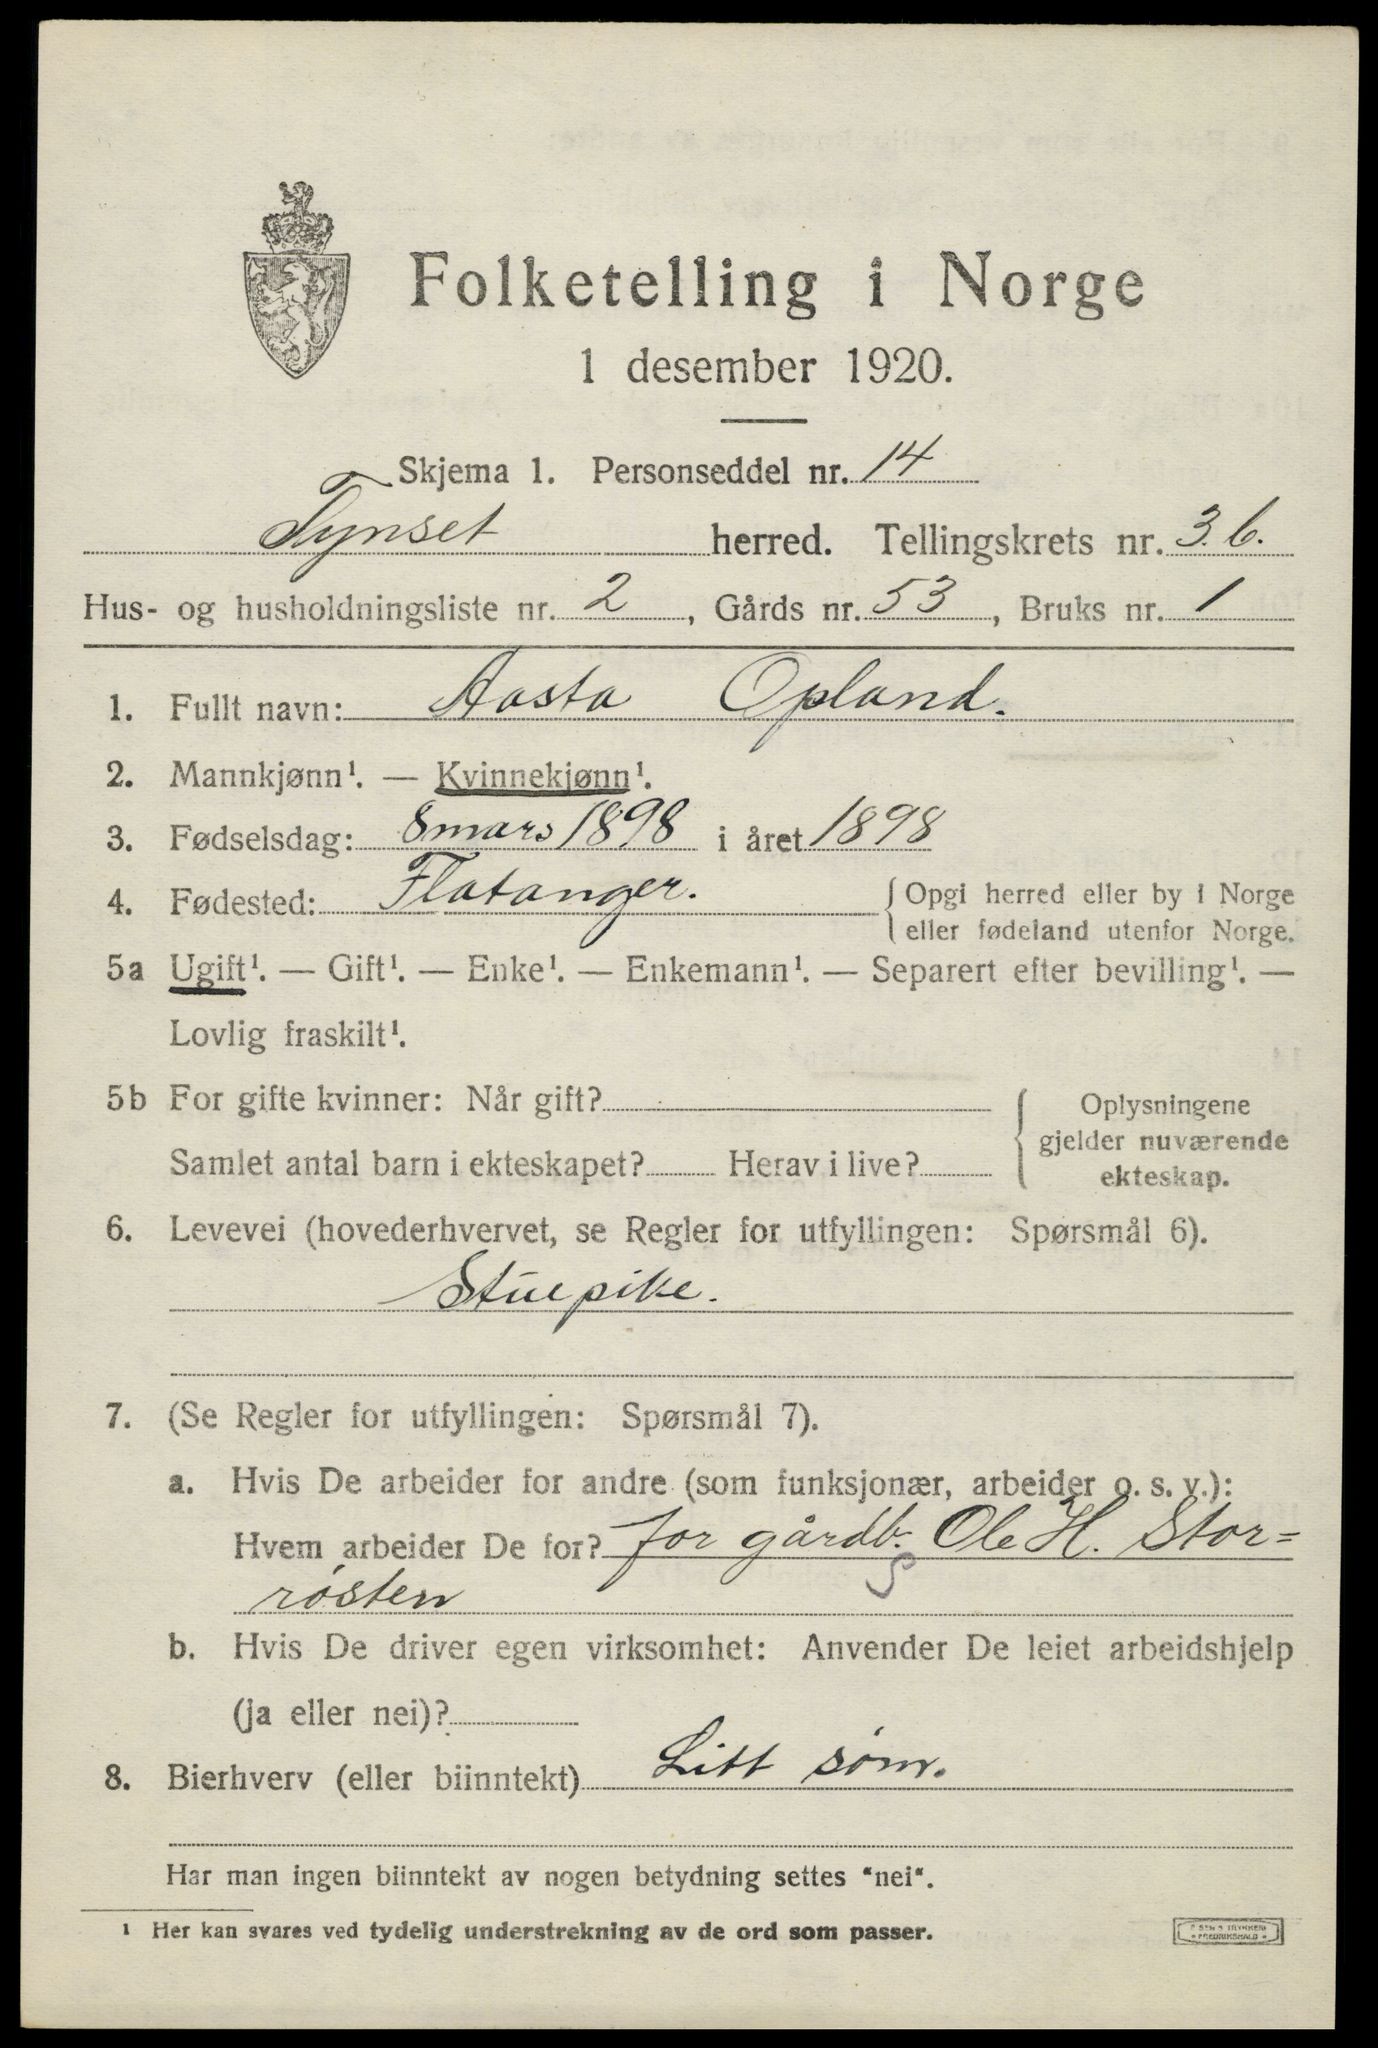 Folketelling i Norge
1 desember 1920.
Skjema 1. Personseddel nr. 14
Tynset herred. Tellingskrets nr. 3.b.
Hus- og husholdningsliste nr. 2, Gårds nr. 53, Bruks nr. 1
1. Fullt navn: Aasta Opland.
2. Mannkjønn¹. — Kvinnekjønn¹.
3. Fødselsdag: 8 mars 1898 i året 1898
4. Fødested: Flatanger. {Opgi herred eller by i Norge
eller fødeland utenfor Norge.
5a Ugift¹. — Gift¹. — Enke¹. — Enkemann¹. — Separert efter bevilling¹. —
Lovlig fraskilt¹.
5b For gifte kvinner: Når gift? Oplysningene
gjelder nuværende
Samlet antal barn i ekteskapet? Herav i live? ekteskap.
6. Levevei (hovederhvervet, se Regler for utfyllingen: Spørsmål 6).
Stuepike.
7. (Se Regler for utfyllingen: Spørsmål 7).
a. Hvis De arbeider for andre (som funksjonær, arbeider o. s. v.):
Hvem arbeider De for? for gårdb. Ole H. Stor=
røsten
b. Hvis De driver egen virksomhet: Anvender De leiet arbeidshjelp
(ja eller nei)?
8. Bierhverv (eller biinntekt) Litt søm.
Har man ingen biinntekt av nogen betydning settes "nei".
¹ Her kan svares ved tydelig understrekning av de ord som passer.